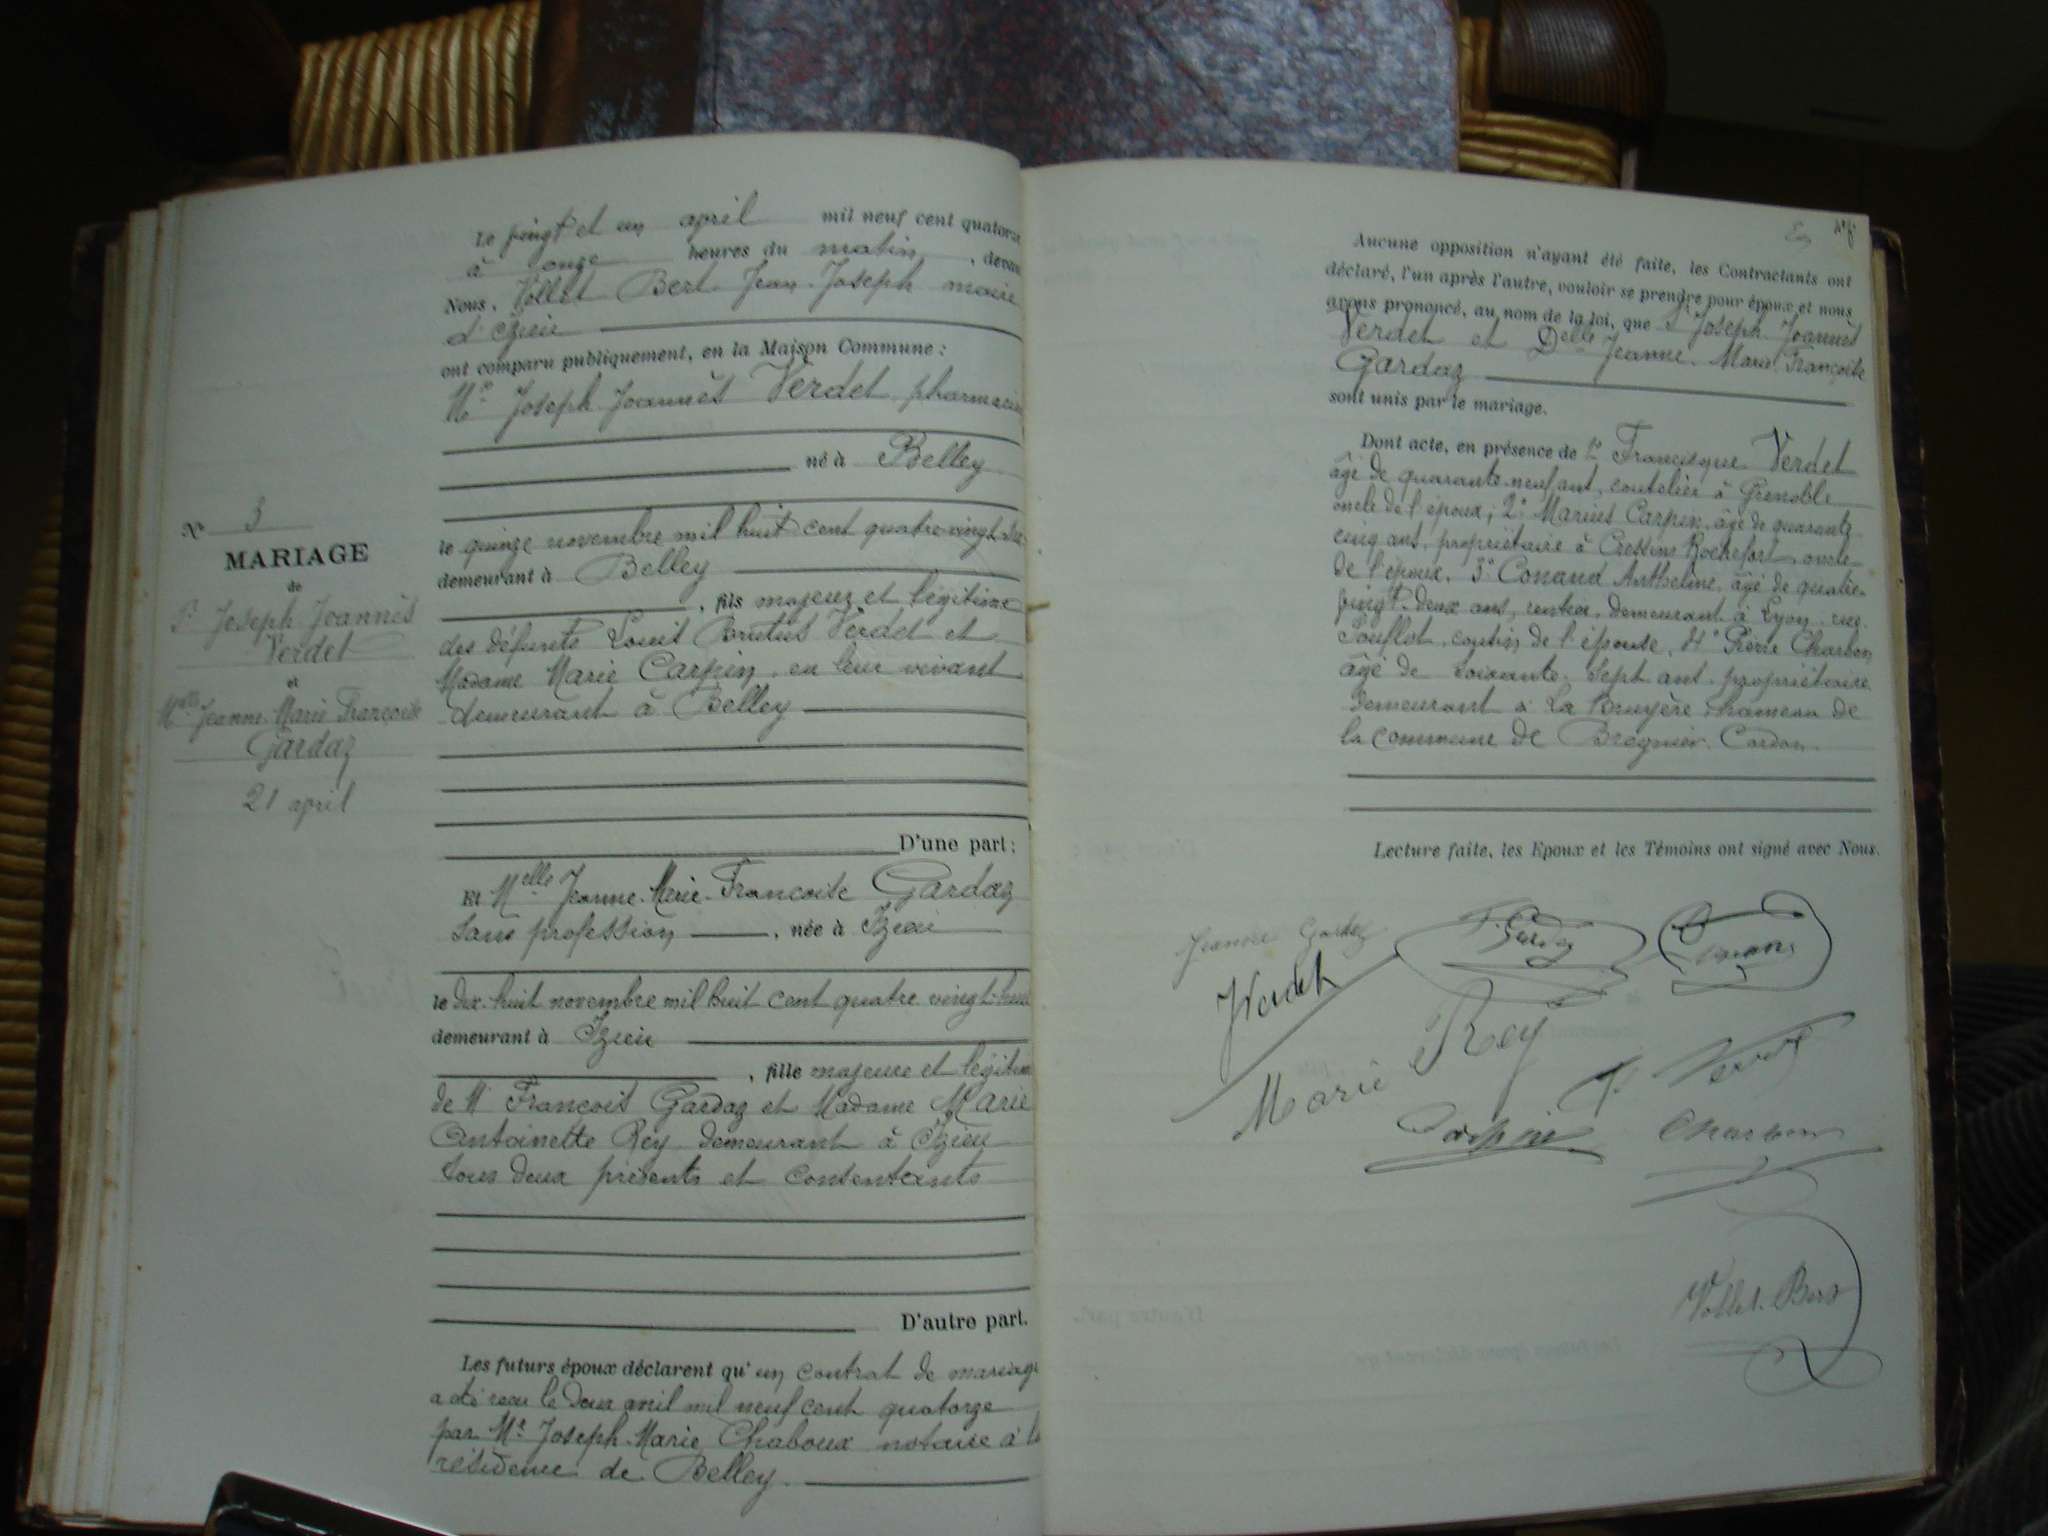 Le vingt et un april mil neuf cent quatorze
à onze heures du matin, devant
Nous, Vollet Bert Jean Joseph maire
d'Izieu
ont comparu publiquement, en la Maison Commune :
Mr Joseph Joannès Verdet pharmacien
né à Belley
le quinze novembre mil huit cent quatre-vingt
demeurant à Belley
, fils majeur et légitime
des défunts Louis Brutus Verdet et
Madame Marie Carpin, en leur vivant
demeurant à Belley
N° 3
MARIAGE
de
Joseph Joannès
Verdet
et
Melle Jeanne Marie Françoise
Gardaz
21 april
D'une part :
Et Melle Jeanne-Marie-Françoise Gardaz
sans profession, née à Izieu
le dix-huit novembre mil huit cent quatre vingt
demeurant à Izieu
, fille majeure et légitime
de Mr François Gardaz et Madame Marie
Antoinette Rey demeurant à Izieu
tous deux présents et consentants
D'autre part.
Les futurs époux déclarent qu'un contrat de mariage
a été reçu le deux avril mil neuf cent quatorze
par Me Joseph-Marie Chaboux notaire à la
résidence de Belley.
Aucune opposition n'ayant été faite, les Contractants ont
déclaré, l'un après l'autre, vouloir se prendre pour époux et nous
avons prononcé, au nom de la loi, que Sr Joseph Joannès
Verdet et Delle Jeanne-Marie Françoise
Gardaz
sont unis par le mariage.
Dont acte, en présence de 1° Francisque Verdet
âgé de quarante-neuf ans, coutelier à Grenoble
oncle de l'époux; 2° Marius Carpin, âgé de quarante
cinq ans, propriétaire à Cressin Rochefort, oncle
de l'époux, 3° Conand Anthelme, âgé de quatre-
vingt-deux ans, rentier, demeurant à Lyon, rue
Soufflot, cousin de l'épouse, 4° Pierre Charbon
âgé de soixante-sept ans, propriétaire
demeurant à La Bruyère, hameau de
la commune de Bregnier-Cordon.
Lecture faite, les Epoux et les Témoins ont signé avec Nous.
Jeanne Gardaz
F. Gardaz
Conand
J Verdet
Marie Rey
F. Verdet
Carpin
Charbon
Vollet-Bert